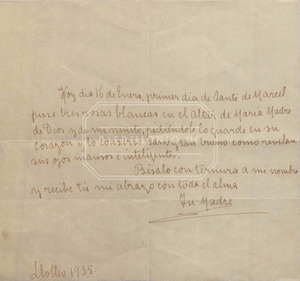 Hoy dia 16 de Enero, primer dia de Santo de Marcel
puse tres rosas blancas en el Altar de María Madre
de Dios y de mi niñito, pidiéndole lo guarde en su
corazón y lo conserve sano y tan bueno como revelan
sus ojos mansos e inteligentes.
Bésalo con ternura a mi nombre
y recibe tú mi abrazo con toda el alma
Tu Madre
1935.